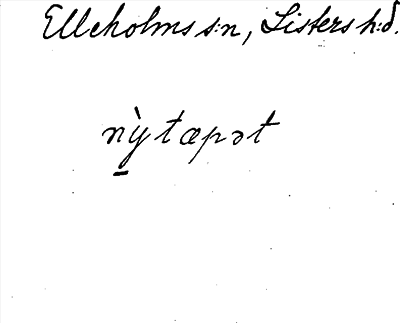 Elleholms s:n, Listers h:d.
nỳtæpət